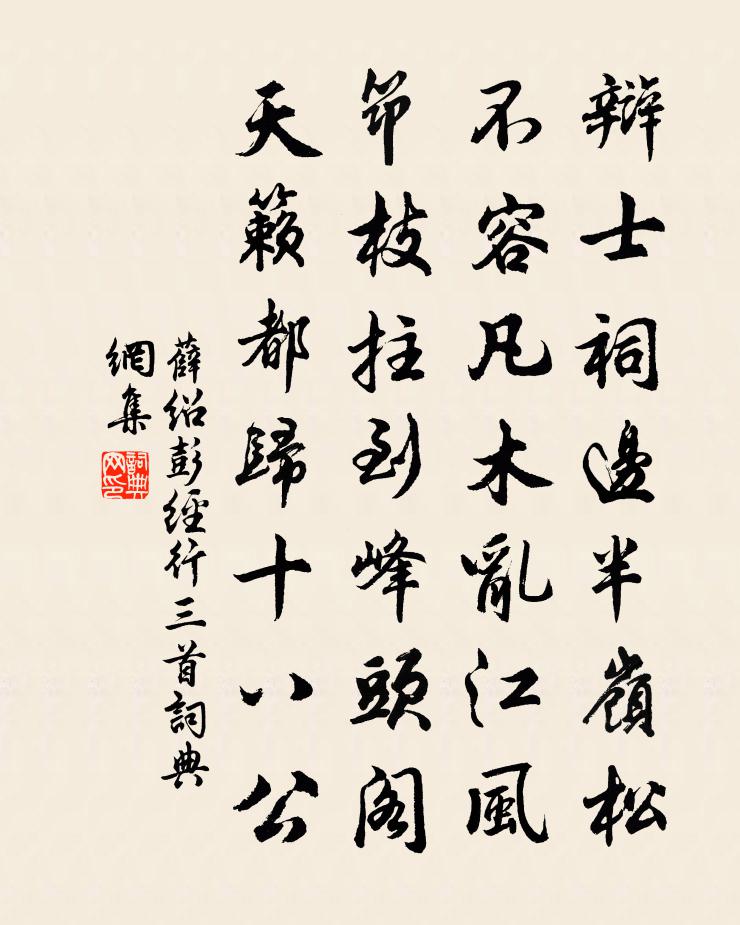 辯士祠邊半嶺松
不容凡木亂江風
筇枝拄到峰頭閣
天籟都歸十八公
薛紹彭經行三首詞典
網集
詞典網印